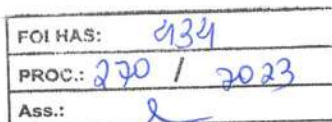 FOLHAS: 434
PROC.: 270 / 2023
Ass.: